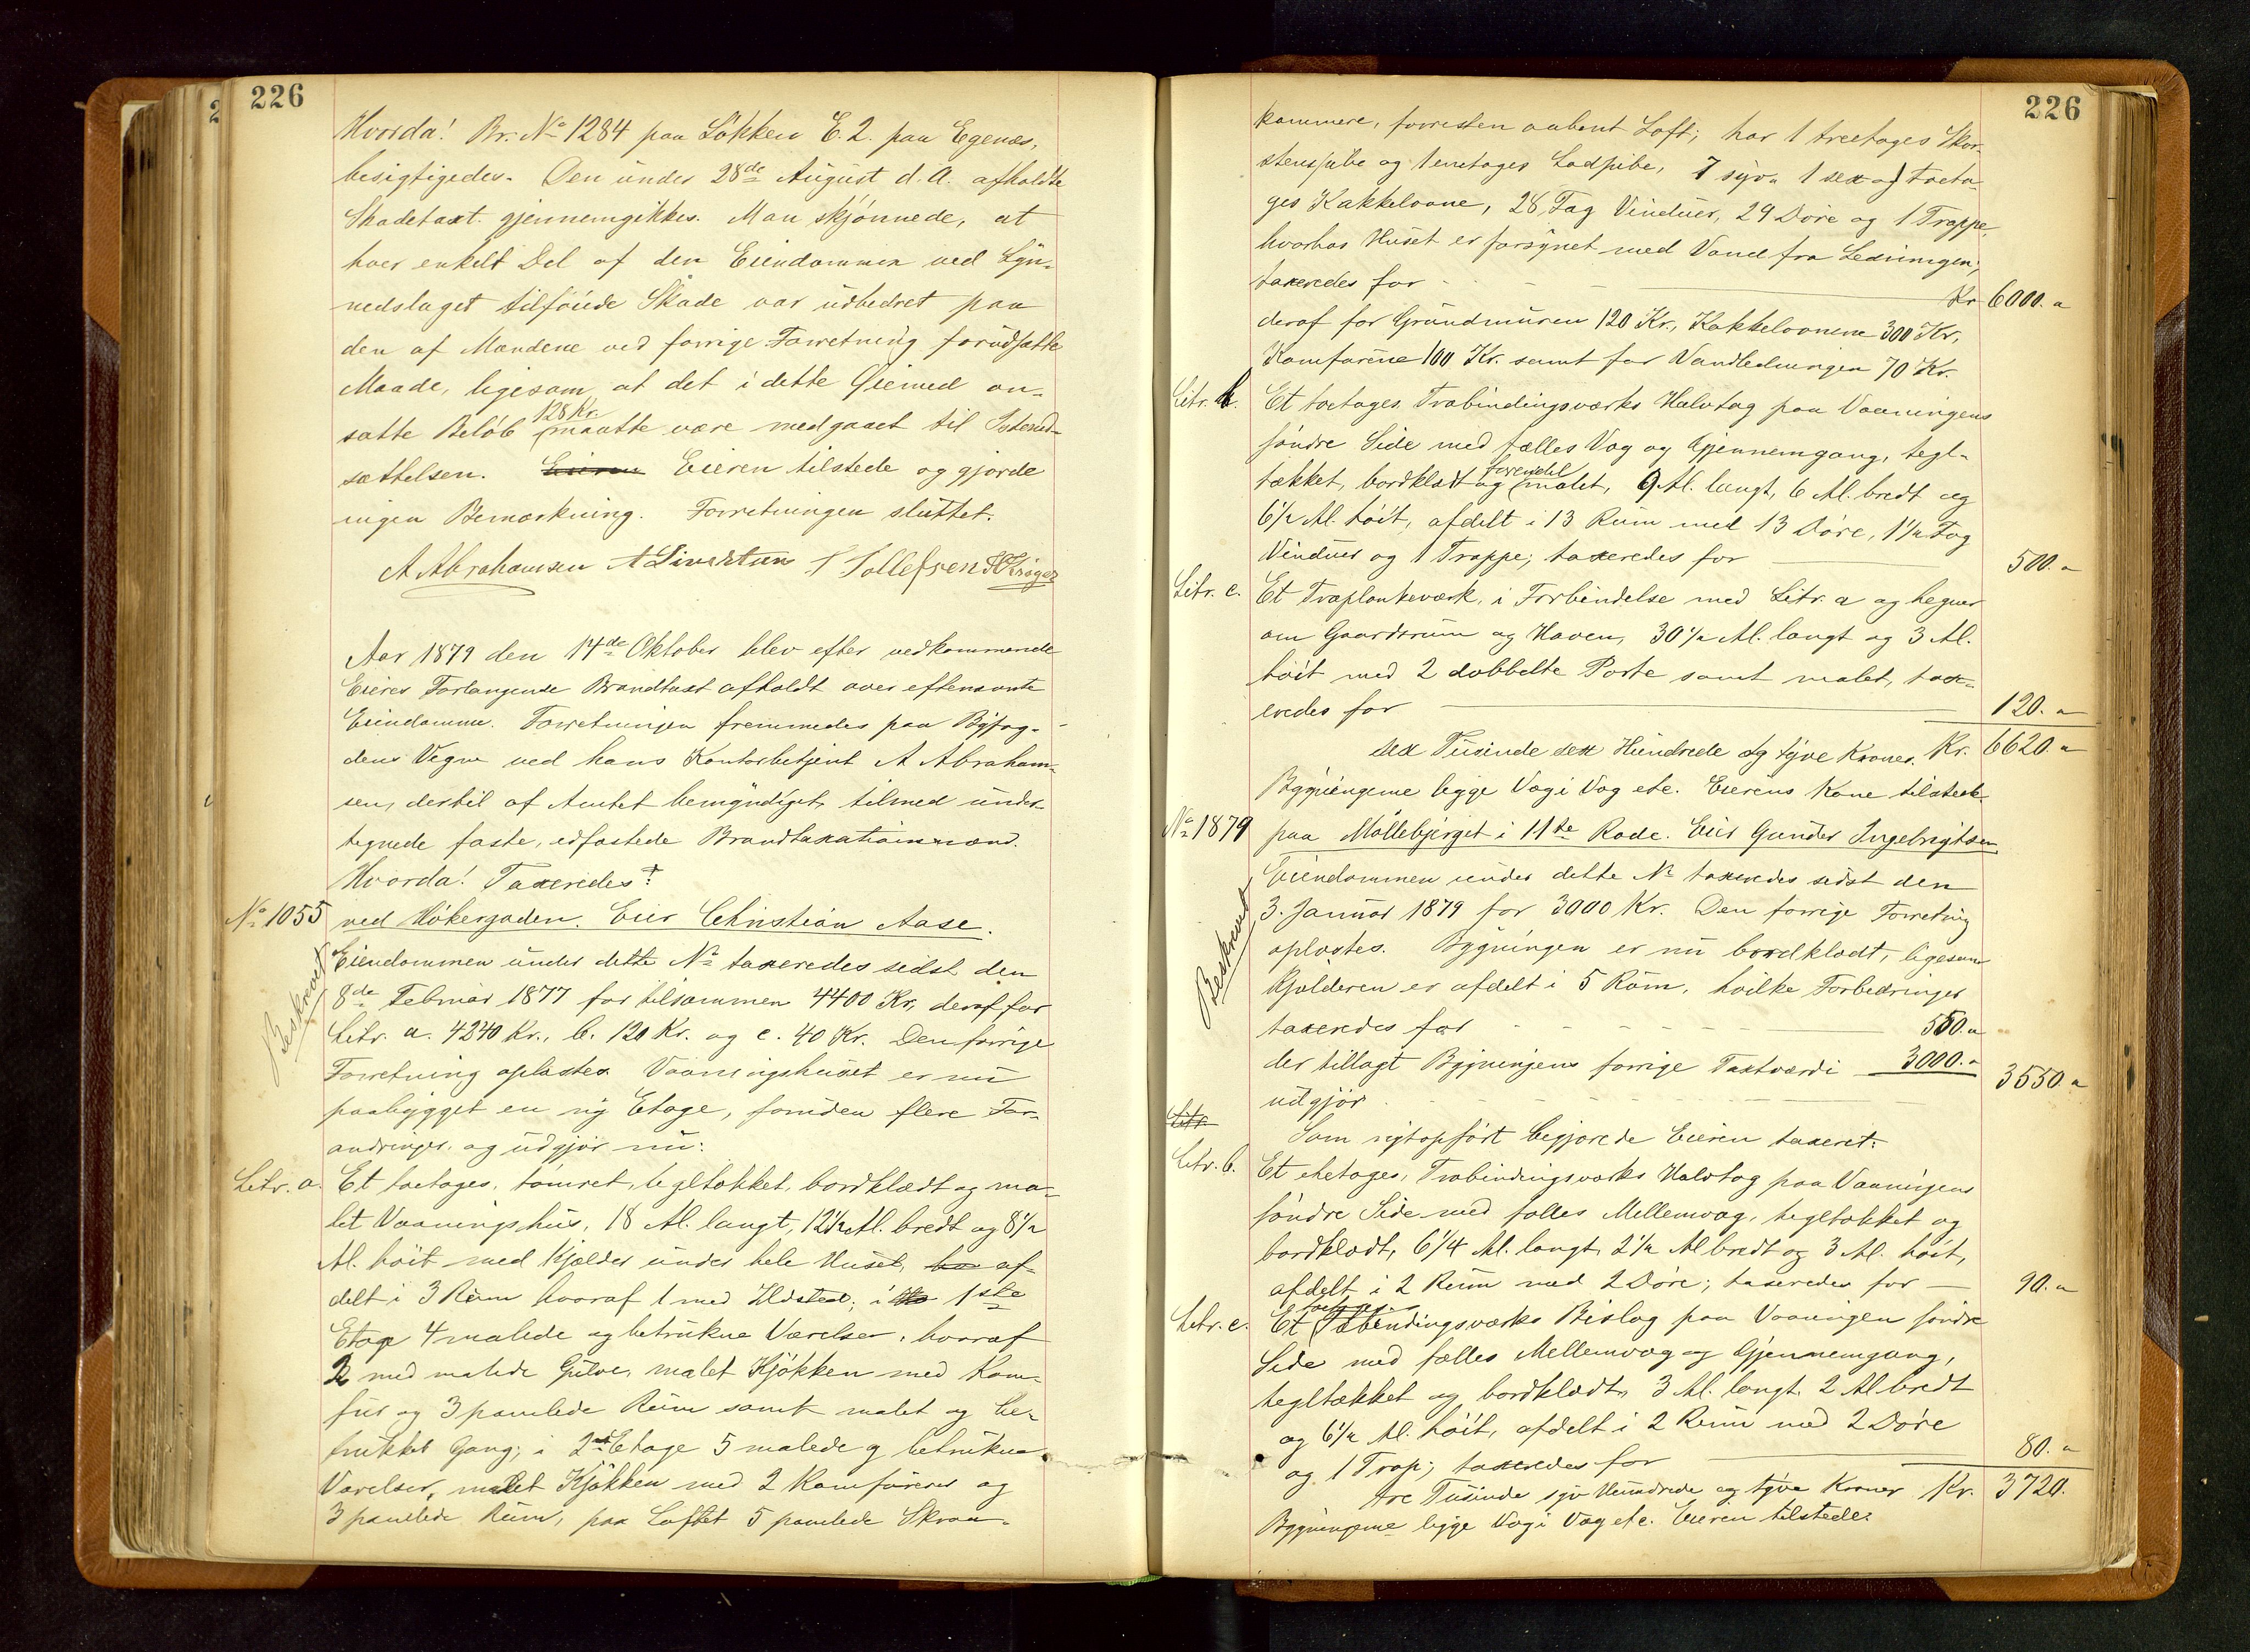 226
Hvorda! Br. No 1284 paa Løkken E. 2. paa Egenæs,
besigtigedes. Den under 28de August d. A. afholdte
Skadetaxt. gjennemgikkes. Man skjønnede, at
hver enkelt Del af den Eiendommen ved Lyn-
nedslaget tilføiede Skade var udbedret paa
den af Mændene ved forrige Forretning forudsatte
Maade, ligesom at det i dette Øiemed an-
128 Kr.
satte Beløb maatte være medgaaet til Istand-
sættelsen. Eieren Eieren tilstede og gjorde
ingen Bemærkning. Forretningen sluttet.
A Abrahamsen A Sivertsen T Tollefsen
Aar 1879 den 14de Oktober blev efter vedkommende
Eieres Forlangende Brandtaxt afholdt over eftennævnte
Eiendomme. Forretningen fremmedes paa Byfog-
dens Vegne ved hans Kontorbetjent A Abraham-
sen, dertil af Amtet bemyndiget, tilmed under-
tegnede faste, edfæstede Brandtaxationsmænd.
Hvorda! Taxeredes:
No 1055 ved Høkergaden. Eier Christian Aase.
Beskrevet
Eiendommen under dette No taxeredes sidst den
8de Februar 1877 for tilsammen 4400 Kr, deraf for
Litr. a. 4240 Kr., b. 120 Kr. og c. 40 Kr. Den forrige
Forretning oplæstes. Vaaningshuset er nu
paabygget en ny Etage, foruden flere For-
andringer og udgjør nu:
Litr. a. Et toetages, tømret, tegltækket, bordklædt og ma-
let Vaaningshus, 18 Al. langt, 12½ Al. bredt og 8½
Al. høit med Kjælder under hele Huset, af-
delt i 3 Rum hvoraf 1 med Ildsted; i 1ste
Etage 4 malede og betrukne Værelser, hvoraf
2 med malede Gulve, malet Kjøkken med Kom-
fur og 3 panelede Rum samt malet og be-
trukket Gang; i 2d Etage 5 malede og betrukne
Værelser, malet Kjøkken med 2 Komfurer og
3 panelede Rum, paa Loftet 5 panelede Skraa-
226
kammere, forresten aabent Loft; har 1 treetages Skor-
stenspibe og 1 enetages Lodpibe, 7 syv 1 sex og toeta-
ges Kakkelovne, 28 Fag Vinduer, 29 Døre og 1 Trappe,
hvorhos Huset er forsynet med Vand fra Ledningen;
taxeredes for Kr 6000. "
deraf for Grundmuren 120 Kr., Kakkelovnene 300 Kr,
Komfurene 100 Kr. samt for Vandledningen 70 Kr.
Litr. b. Et toetages Træbindingsværks Halvtag paa Vaaningens
søndre Side med fælles Væg og Gjennemgang, tegl-
forendel
tækket, bordklædt og malet, 9 Al. langt, 6 Al. bredt og
6½ Al. høit, afdelt i 13 Rum med 13 Døre, 1½ Fag
Vinduer og 1 Trappe; taxeredes for 500. "
Litr. c. Et Træplankeværk, i Forbindelse med Litr. a og hegner
om Gaardsrum og Haven, 30½ Al. langt og 3 Al.
høit med 2 dobbelte Porte samt malet, tax-
eredes for 120. "
sex Tusinde sex Hundrede og tyve Kroner. Kr. 6620. "
Bygningerne ligge Væg i Væg etc. Eierens Kone tilstede.
No 1879 paa Møllebjerget i 11te Rode. Eier Gunder Ingebrigtsen
Beskrevet
Eiendommen under dette No taxeredes sidst den
3. Januar 1879 for 3000 Kr. Den forrige Forretning
oplæstes. Bygningen er nu bordklædt, ligesom
Kjælderen er afdelt i 5 Rum, hvilke Forbedringer
taxeredes for 550. "
der tillagt Bygningens forrige Taxtværdi 3000. "
udgjør 3550. "
Litr
Som nyopført begjærede Eieren taxeret:
Litr. b. Et etetages, Træbindingsværks Halvtag paa Vaaningens
søndre Side med fælles Mellemvæg, tegltækket og
bordklædt, 6¼ Al. langt, 2½ Al bredt og 3 Al. høit,
afdelt i 2 Rum med 2 Døre; taxeredes for 90. "
toetages
Litr. c. Et Træbindingsværks Bislag paa Vaaningen søndre
Side med fælles Mellemvæg og Gjennemgang,
tegltækket og bordklædt, 3 Al. langt. 2 Al bredt
og 6½ Al. høit, afdelt i 2 Rum med 2 Døre
og 1 Trap; taxeredes for 80. "
tre Tusinde syv Hundrede og tyve Kroner Kr. 3720.
Bygningerne ligge Væg i Væg etc. Eieren tilstede.